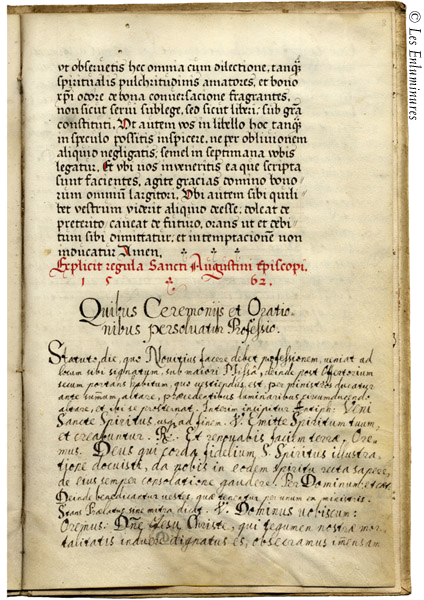 vt obseruetis hec omnia cum dilectione, tanq̃
spiritialis pulchritudinis amatores, et bono
xp̃i odore de bona conuersacione fragrantes,
non sicut serui sub lege, sed sicut liberi, sub gr̃a
constituti. Vt autem vos in libello hoc tanq̃
in speculo possitis inspicere, ne per obliuionem
aliquid negligatis, semel in septimana vobis
legatur. Et vbi uos inueneritis ea que scripta
sunt facientes, agite gracias domino bono⸗
rum omniũ largitori. Vbi autem sibi quili⸗
bet vestrum viderit aliquid deesse, doleat de
preterito caueat de futuro, orans ut et debi⸗
tum sibi dimittatur, et in temptacionẽ non
inducatur Amen.
Explicit regula Sancti Augustini Episcopi.
1 5 6 2.
Quibus Ceremonijs et Oratio⸗
nibus persoluatur Professio.
Statuto die, quo Nouitius facere debet professionem, ueniat ad
locum sibi signatum, sub maiori Missa, deinde post Offertorium
secum portans habitum, quo uestiendus est, per ministros ducatur
ante sumum altare, praecedentibus luminaribus circumducendo
altare, et ibi se prosternat. Interim incipitur Antiph: Veni
Sancte Spiritus, usq ad finem. V. Emitte Spiritum tuum,
et creabuntur. Re. Et renouabis faciem terrae, Ore⸗
mus. Deus qui corda fidelium S. Spiritus illustra⸗
tione docuisti, da nobis in eodem Spiritu recta sapere,
de eius semper consolatione gaudere. Per Dominum, etca.
Deinde benedicantur uestes, quae tenentur per unum ex ministris.
Stans Praelatus sine mitra dicit. V. Dominus uobiscum:
Oremus: Dñe Jesu Christe, qui tegumen nostrae mor⸗
talitatis induere dignatus es, obsecramus imensam
© Les Enluminures